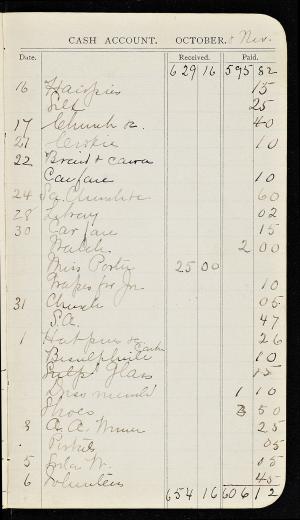 CASH ACCOUNT. OCTOBER. & Nov.
Date. Received. Paid.
629 16 595 82
16 Hairpins 15
Silk 25
17 Church &c. 40
21 10
22 Braid &
Carfare 10
24 Sq. Chocolate 60
28 Library 02
30 Car fare 15
Watch. 2 00
Miss Porter 25 00
Grapes for Jn 10
31 Church 05
S.A. 47
1 Hatpins &c 26
Bisulphite Carb 10
Glass 15
Dress 1 10
Shoes 3 50
8 A. A. 25
05
5 Soda W. 05
6 Volunteers 45
654 16 606 12